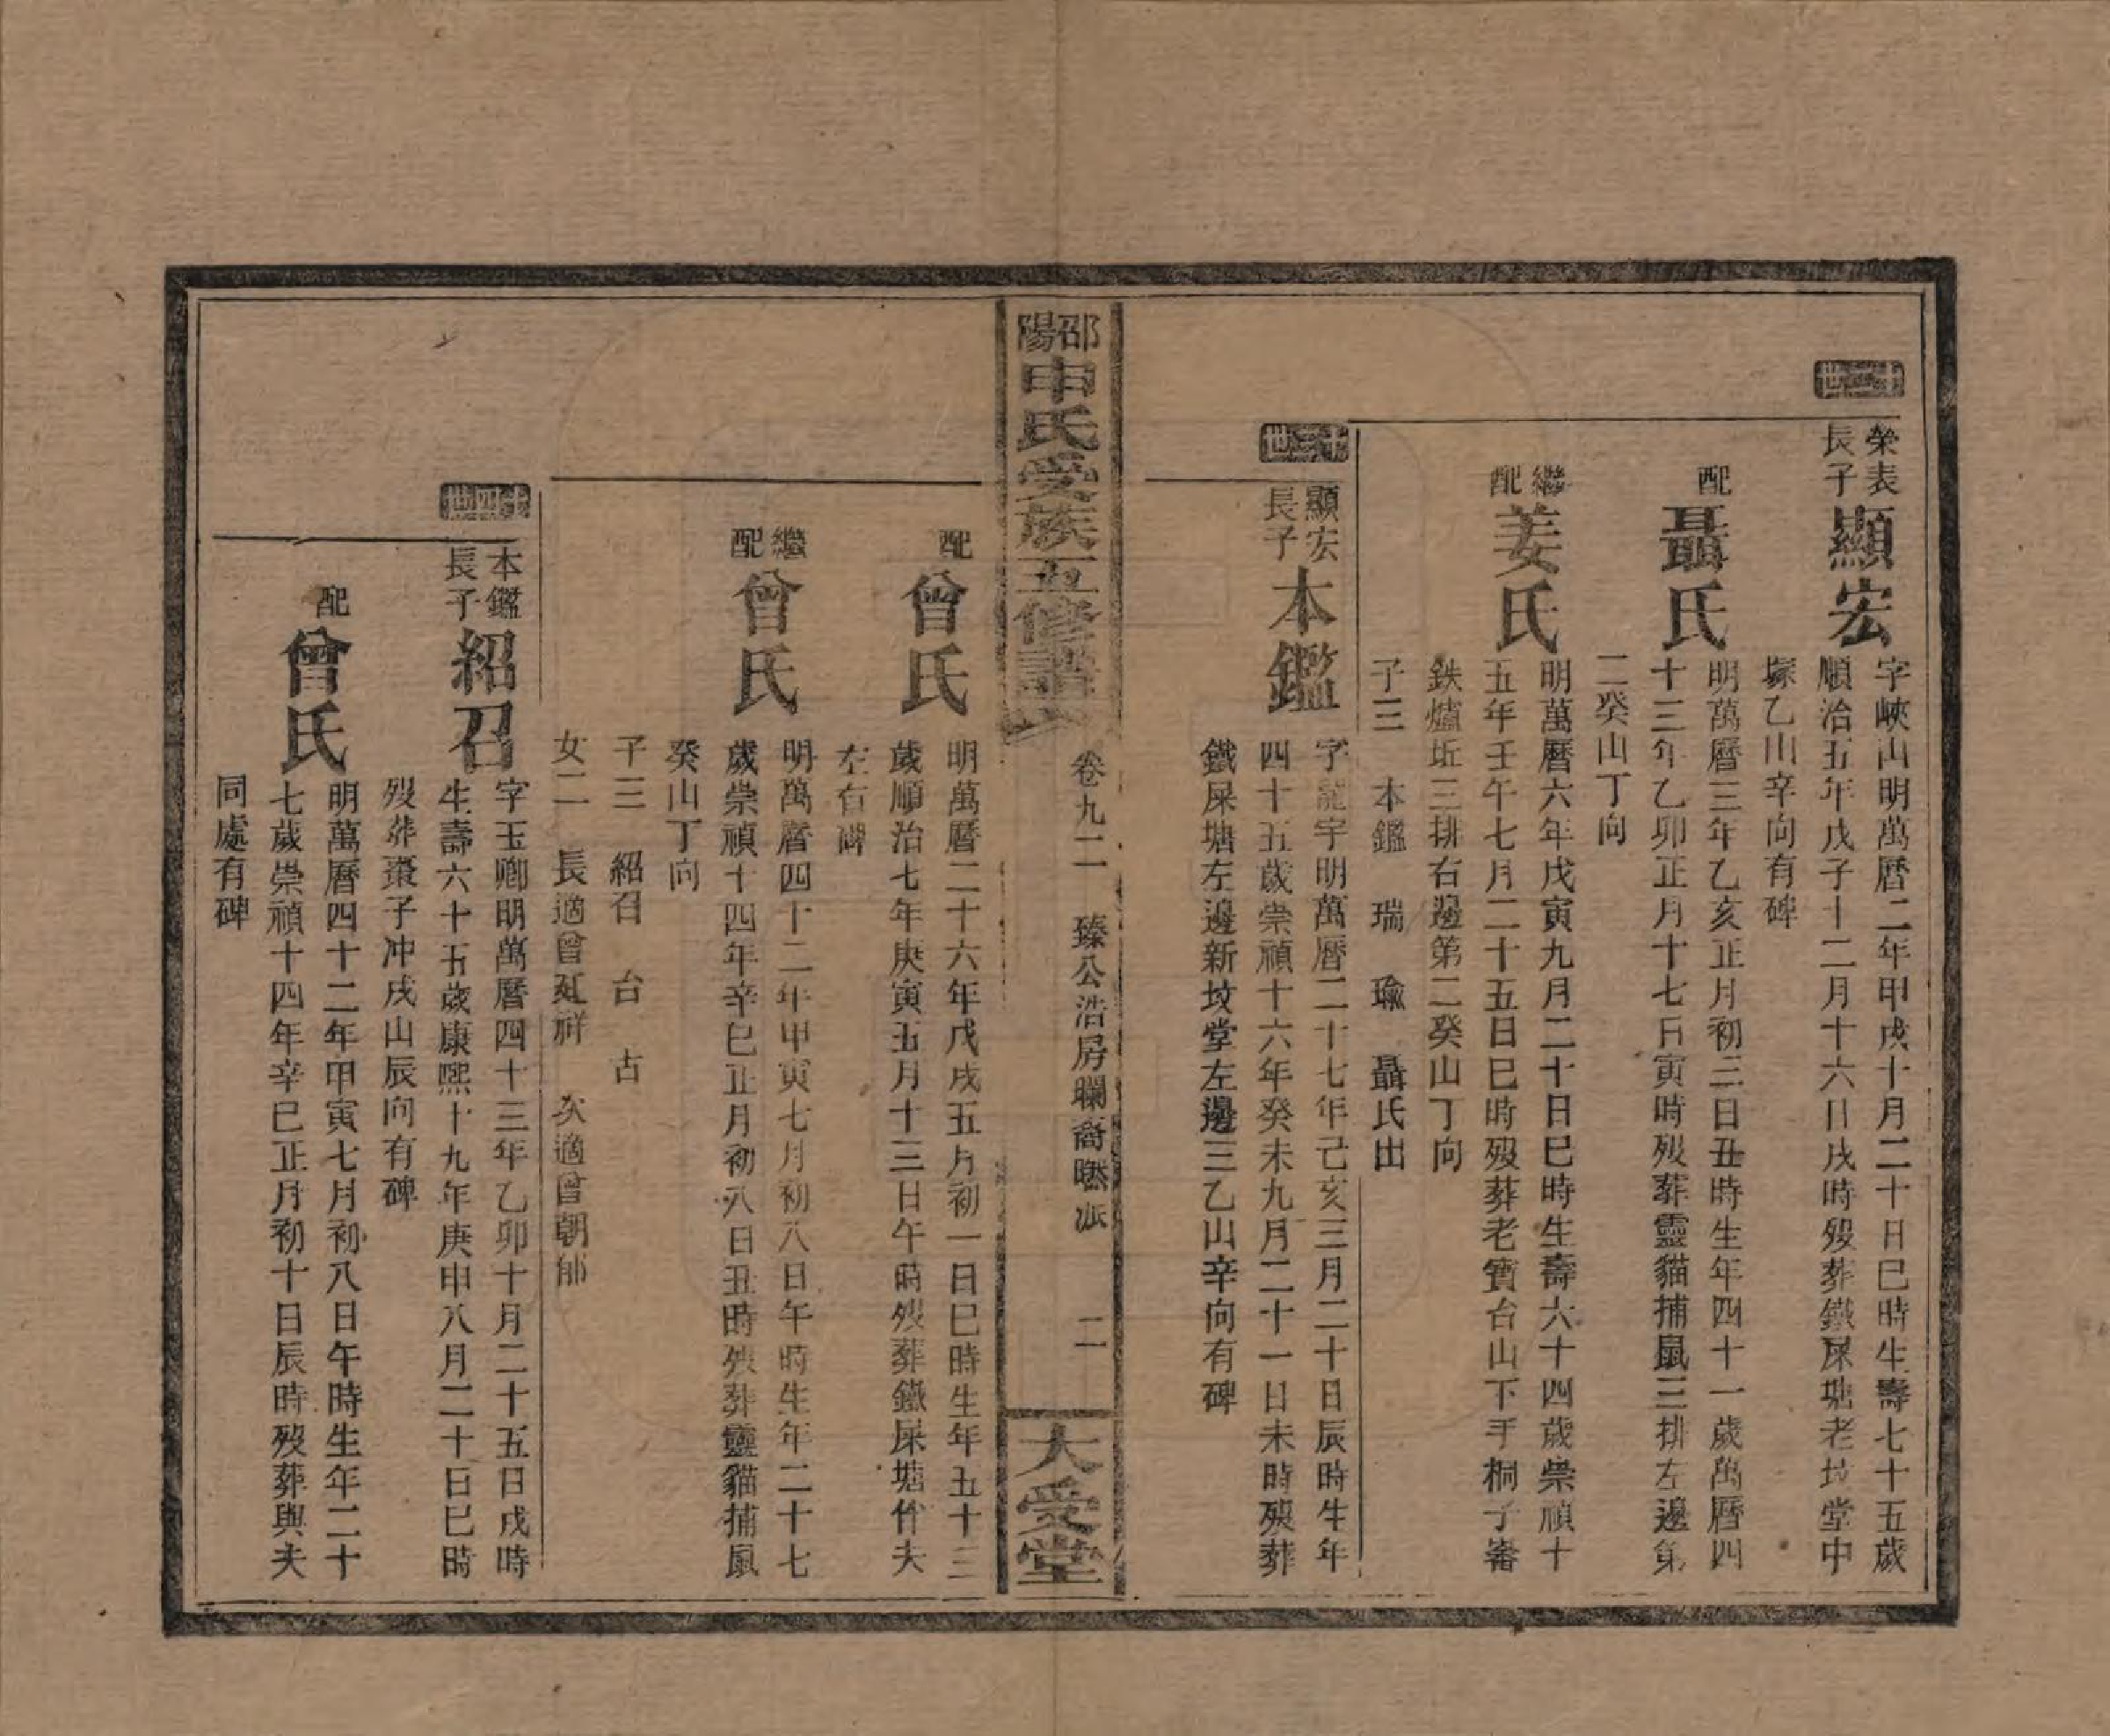 十二世
榮表
長子
顯宏
字峽山明萬曆二年甲戌十月二十日巳時生壽七十五歲
順治五年戊子十二月十六日戌時歿葬鐵屎塘老坟堂中
塚乙山辛向有碑
配
聶氏
明萬曆三年乙亥正月初三日丑時生年四十一歲萬曆四
十三年乙卯正月十七日寅時歿葬靈貓捕鼠三排左邊第
二癸山丁向
繼
配
姜氏
明萬曆六年戊寅九月二十日巳時生壽六十四歲崇禎十
五年壬午七月二十五日巳時歿葬老寶台山下手桐子崙
鉄爐坵三排右邊第二癸山丁向
子三 本鑑 瑞 瑜 聶氏出
十三世
顯宏
長子
本鑑
字龍宇明萬曆二十七年己亥三月二十日辰時生年
四十五歲崇禎十六年癸未九月二十一日未時歿葬
鐵屎塘左邊新坟堂左邊三乙山辛向有碑
邵陽
申氏受族五修譜
卷九二 臻公浩房瓓裔㬗派 二
大受堂
配
曾氏
明萬曆二十六年戊戌五月初一日巳時生年五十三
歲順治七年庚寅五月十三日午時歿葬鐵屎塘伴夫
左有碑
繼
配
曾氏
明萬曆四十二年甲寅七月初八日午時生年二十七
歲崇禎十四年辛巳正月初八日丑時歿葬靈貓捕鼠
癸山丁向
子三 紹召 台 古
女二 長適曾廷祥 次適曾朝師
十四世
本鑑
長子
紹召
字玉卿明萬曆四十三年乙卯十月二十五日戌時
生壽六十五歲康熙十九年庚申八月二十日巳時
歿葬棗子冲戌山辰向有碑
配
曾氏
明萬曆四十二年甲寅七月初八日午時生年二十
七歲崇禎十四年辛巳正月初十日辰時歿葬與夫
同處有碑